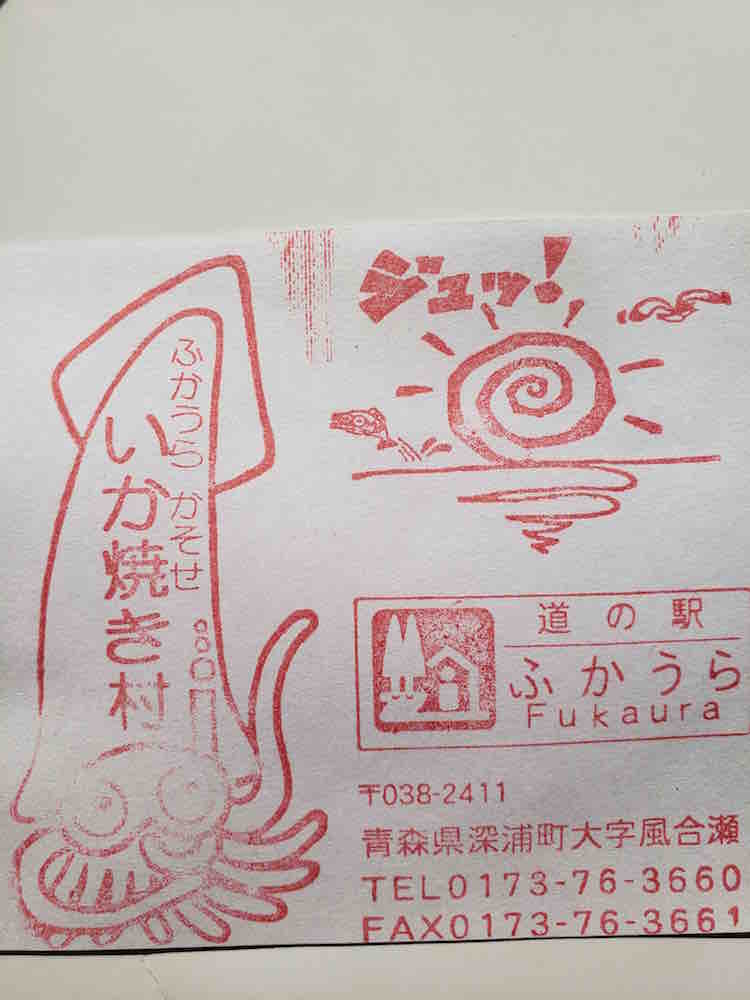 ふかうら かそせ
いか焼き村
ジュッ!
道の駅
ふかうら
Fukaura
〒038-2411
青森県深浦町大字風合瀬
TEL0173-76-3660
FAX0173-76-3661